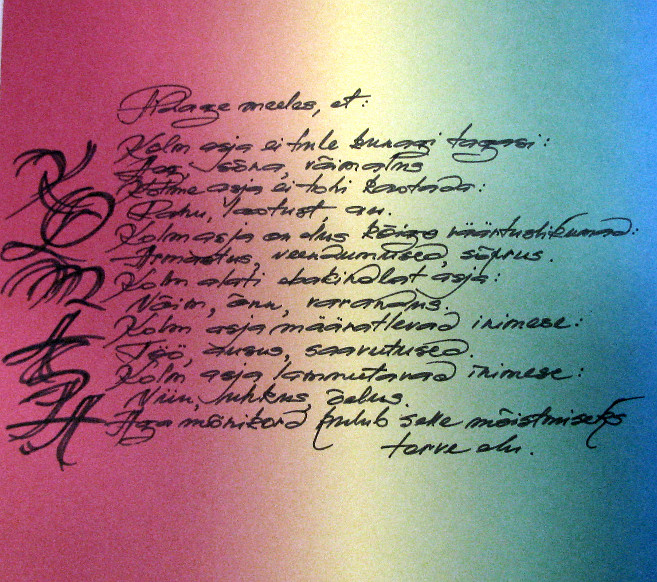 Pidage meeles, et:
Kolm asja ei tule kunagi tagasi:
Aeg, sõna, võimalus
Kolme asja ei tohi kaotada:
Rahu, lootust, au.
Kolm asja on elus kõige väärtuslikumad:
Armastus, veendumused, sõprus.
Kolm alati ebakindlat asja:
Võim, õnn, varandus.
Kolm asja määratlevad inimese:
Töö, ausus, saavutused.
Kolm asja lammutavad inimese:
Viin, uhkus, õelus.
Aga mõnikord kulub selle mõistmiseks
terve elu.
KOLM
ASJA